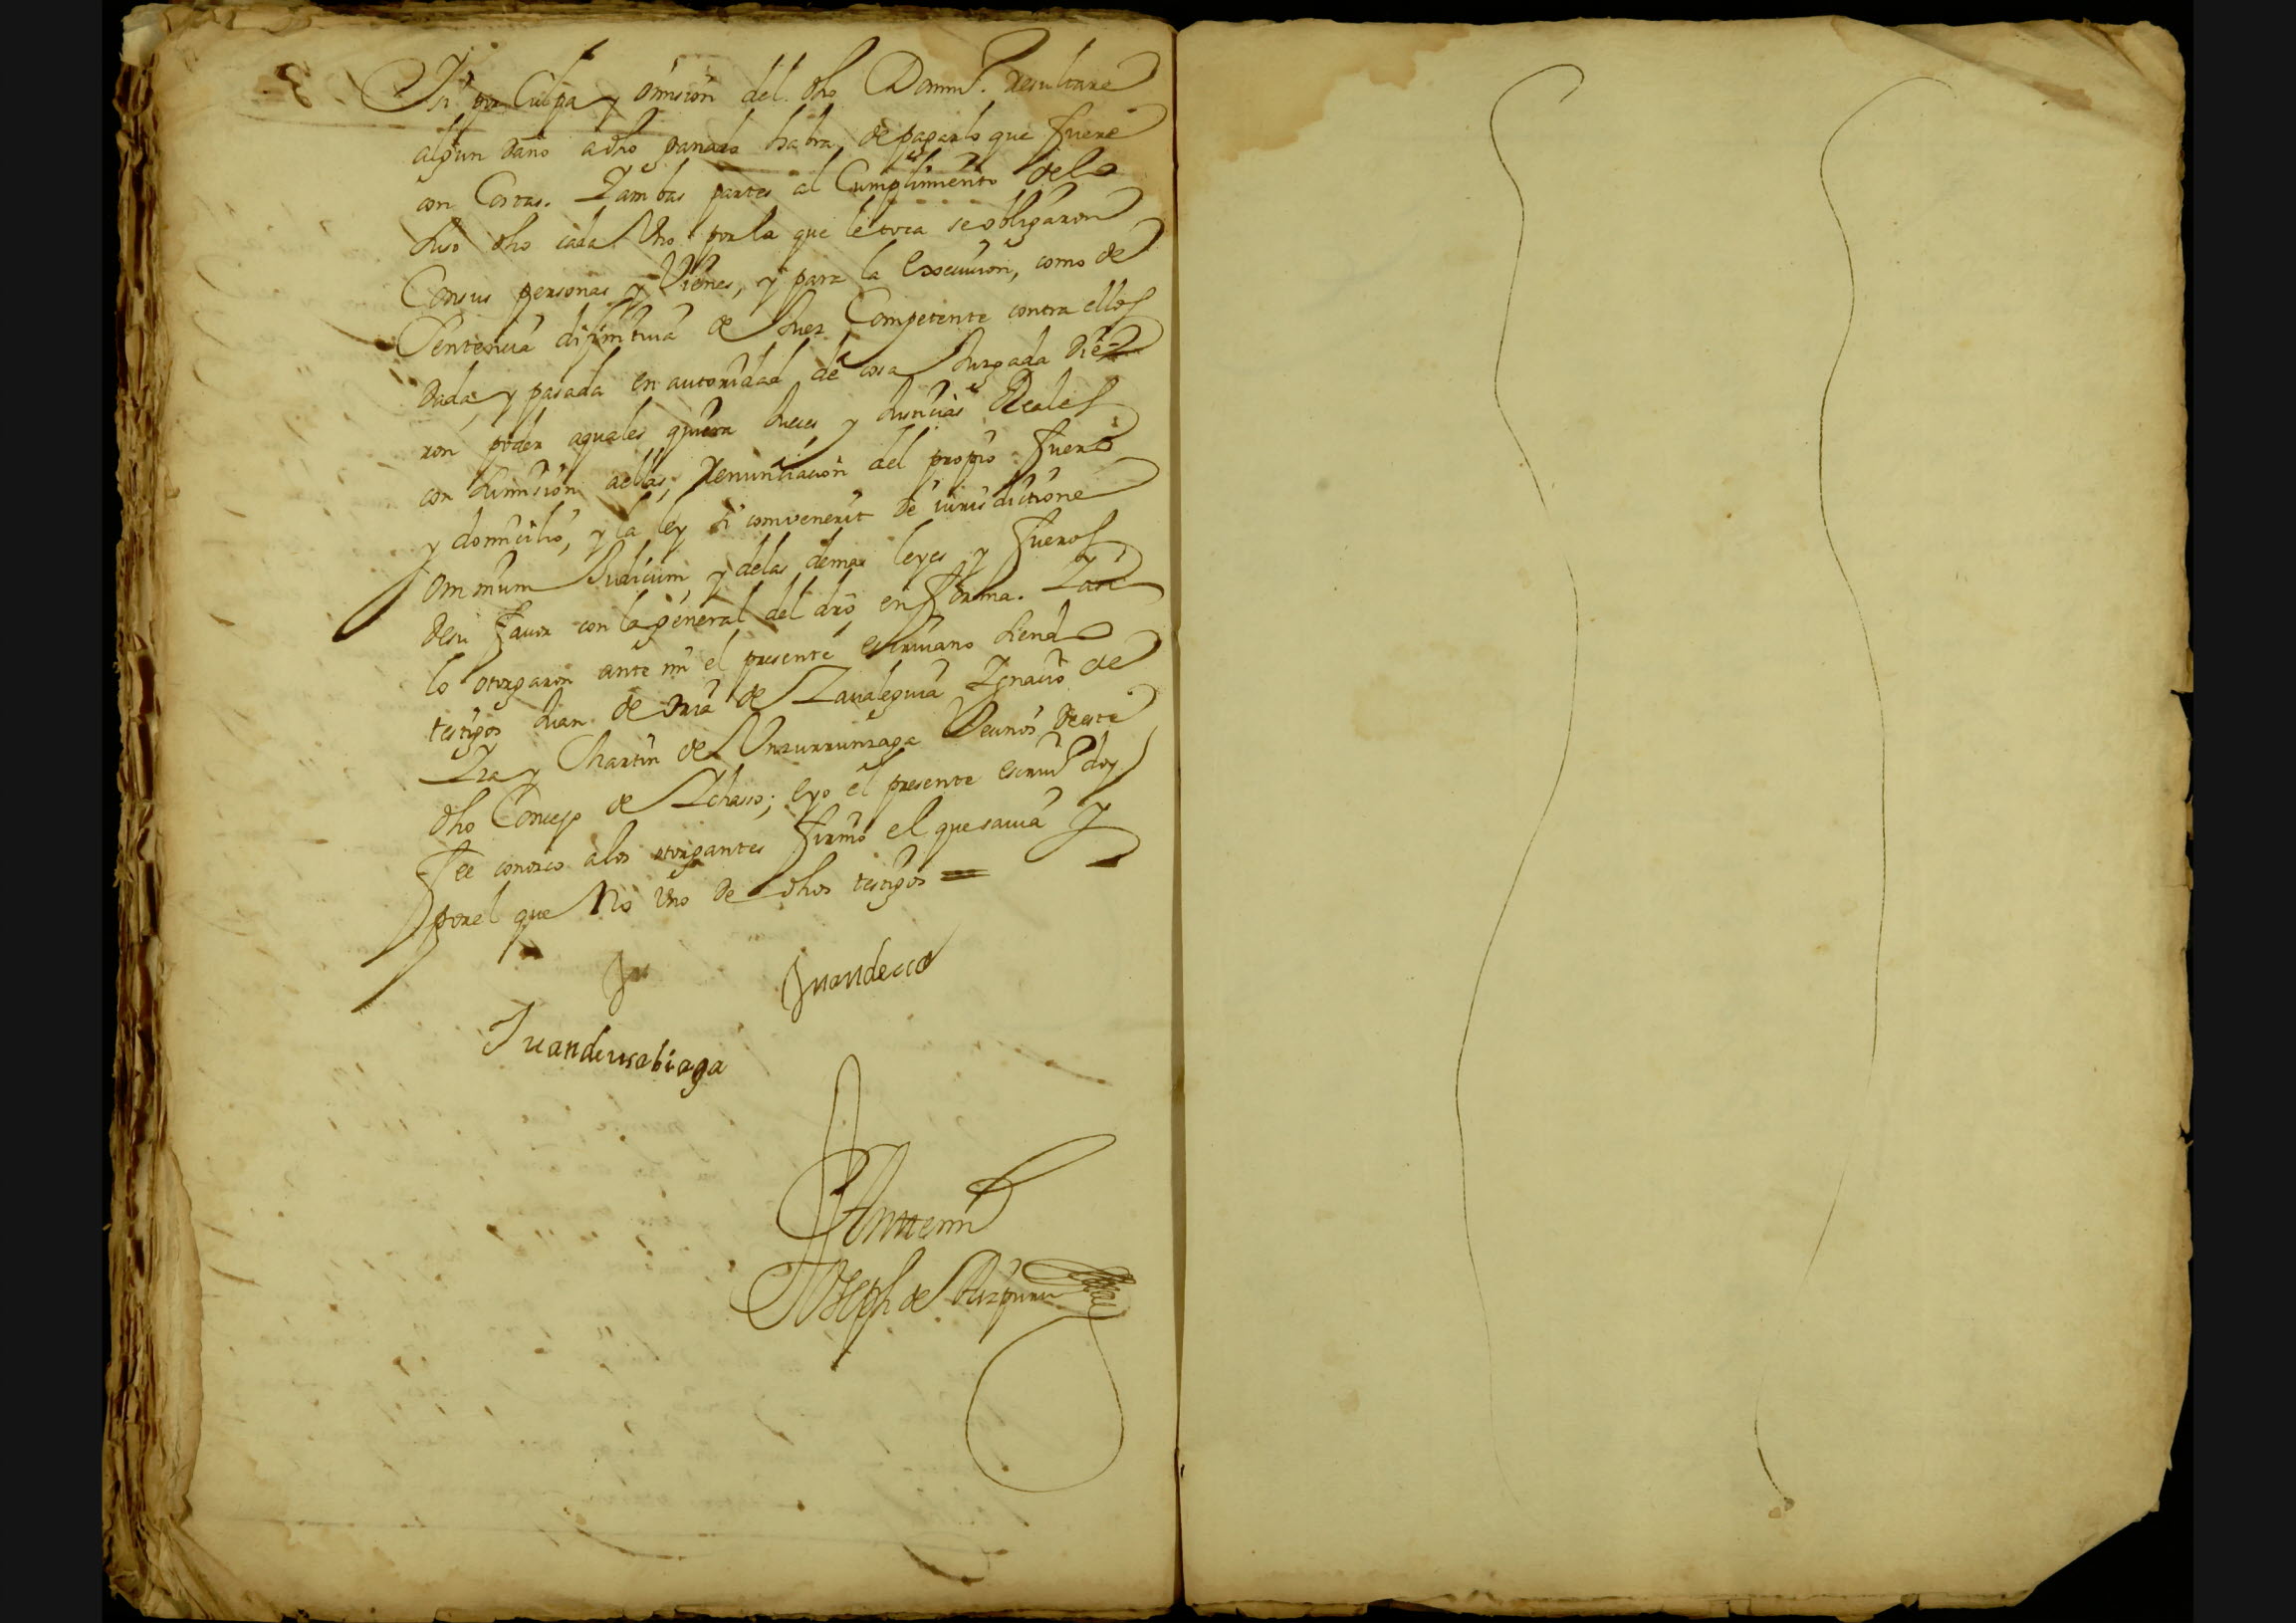 Y si por Culpa y omision del dho Domin.º resultare
algun daño a dho ganado habra de pagar lo que fuere
con Costas. Y ambas partes al Cumplimiento de lo
suso dho cada Vno por lo que le toca se obligaron
Con sus personas y Vienes, y para la execucion, como de
Sentencia difinitiua de Juez Competente contra ellos
dada, y pasada en autoridad de cosa Jurgada die
ron poder a quales quiera Jueces y Justicias Reales
con sumision a ellas, renunciacion del propio fuero
y domicilio, y la ley si convenerit de iurisdictione
omnium Judicum, y de las demas leyes y fueros
de su fauor con la general del dro en forma. Y asi
lo otorgaron ante mi el presente escriuano siendo
testigos Juan de oria de Zaualeguia Ygnacio de
Yza y Martin de Vnzurrunzaga Vecinos de este
dho Concejo de Ychaso; e yo el presente escriu.º doy
fee conosco a los otorgantes firmo el que sauia y
por el que No Vno de dhos testigos =
Juan de
Juan de usabiaga
Ante mi
Joseph de Aizpuru